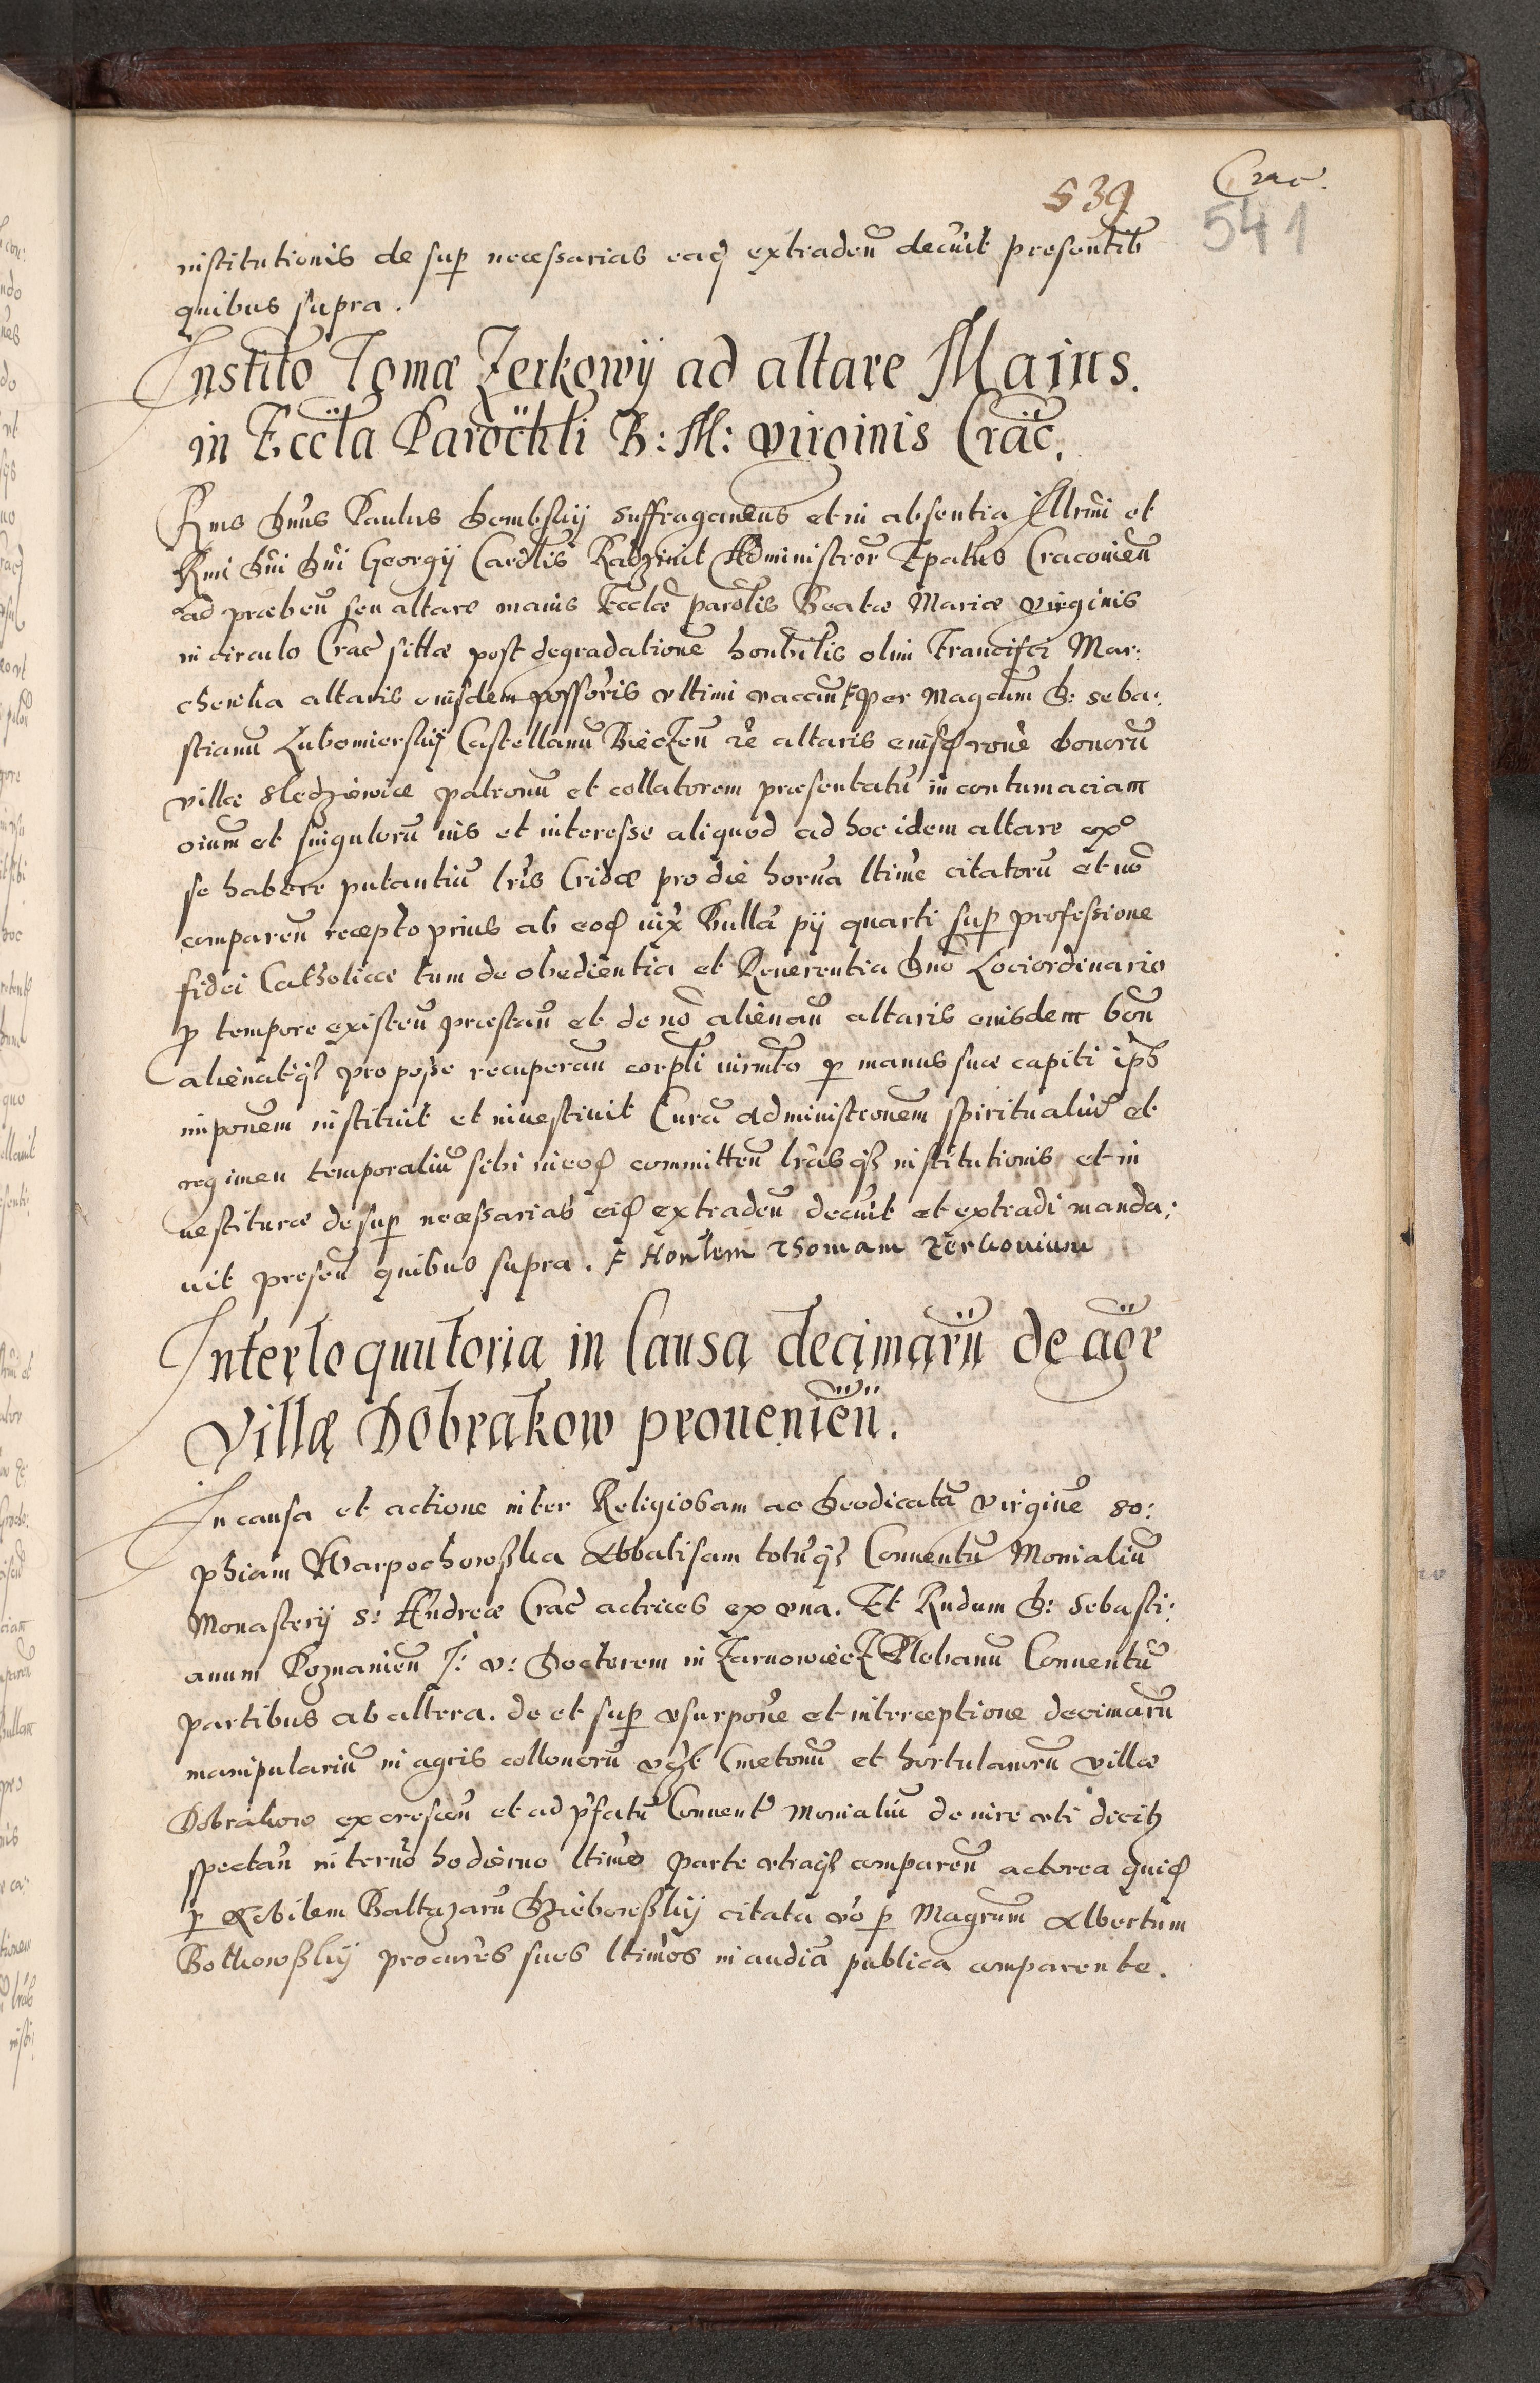 Crac.
539
541
institutionis de sup necessarias eaq extradeñ decuit presentib
quibus supra.
Instito Tomæ Zerkowij ad altare Maius.
in Eccła Parochłi B: M: virginis Crac.
Rms Dnus Paulus Dembskij suffraganeus et in absentia Illmi et
Rmi Dni Dni Georgij Cardlis Radziuil Administror Epatus Cracouieñ
ad præbeñ seu altare maius Ecclæ parochlis Beatæ Mariæ virginis
in circulo Crac sittæ post degradationē honbilis olim Francisci Mar:
chewka altaris eiusdem possoris vltimi vaccañ F per Magcum D: Seba:
stianū Lubomierskij Castellanū Bieczeñ rē altaris eiusd rone bonorū
villæ Sledzieiwicæ patronū et collatorem præsentatū in contumaciam
oium et singulorū ius et interesse aliquod ad hoc idem altare exo
se habere putantiū lris Cridæ pro die horña ltime citatorū et nō
compareñ recepto prius ab eod iux Bullā pij quarti sup professione
fidei Catholicæ tum de obedientia et Reuerentia Dno Lociordinario
p tempore existeñ præstañ et de nō alienañ altaris eiusdem boñ
alienatisq pro posse recuperañ corpli iurmto p manus suæ capiti ips
imponem instituit et inuestiuit Curā administrōnem spiritualiū et
regimen temporaliū sibi in eod committeñ lrasq institutionis et in
uestituræ desup necessarias eid extradeñ decuit et extradi manda:
uit preseñ quibus supra. F Honlem Thomam Zerkouium
Interloquutoria in Causa decimarū de agr
Villæ Dobrakow prouenieñ.
In causa et actione inter Religiosam ac Deodicatā virginē So:
phiam Warpochowska Abbatisam totūq Conuentū Monialiū
Monasterij S: Andreæ Crac actrices ex vna. Et Rndum D: Sebasti:
anum Poznanieñ J: V: Doctorem in Zarnowiecz Plebanū Conuentū
partibus ab altera. de et sup vsurpone et interceptione decimarū
manipulariū in agris collonorū vgt Cmetonū et hortulanorū villæ
Dobrakow excresceñ et ad pfatū Conuentū monialiū de iure vti dicitr
spectañ in termo hodierno ltime parte vtraq compareñ actorea quid
p Nobilem Baltazarū Dzieboroßkij citata vō p Magrum Albertum
Botkowßkij procures suos ltimos in audia publica comparente.